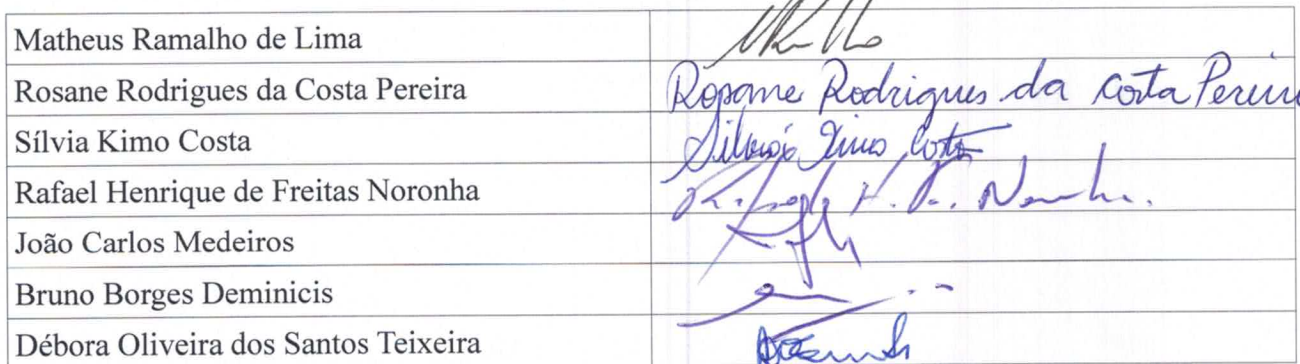 Matheus Ramalho de Lima
Rosane Rodrigues da Costa Pereira Rosane Rodrigues da Costa Pereira
Sílvia Kimo Costa Silvia Kimo Costa
Rafael Henrique de Freitas Noronha
João Carlos Medeiros
Bruno Borges Deminicis
Débora Oliveira dos Santos Teixeira